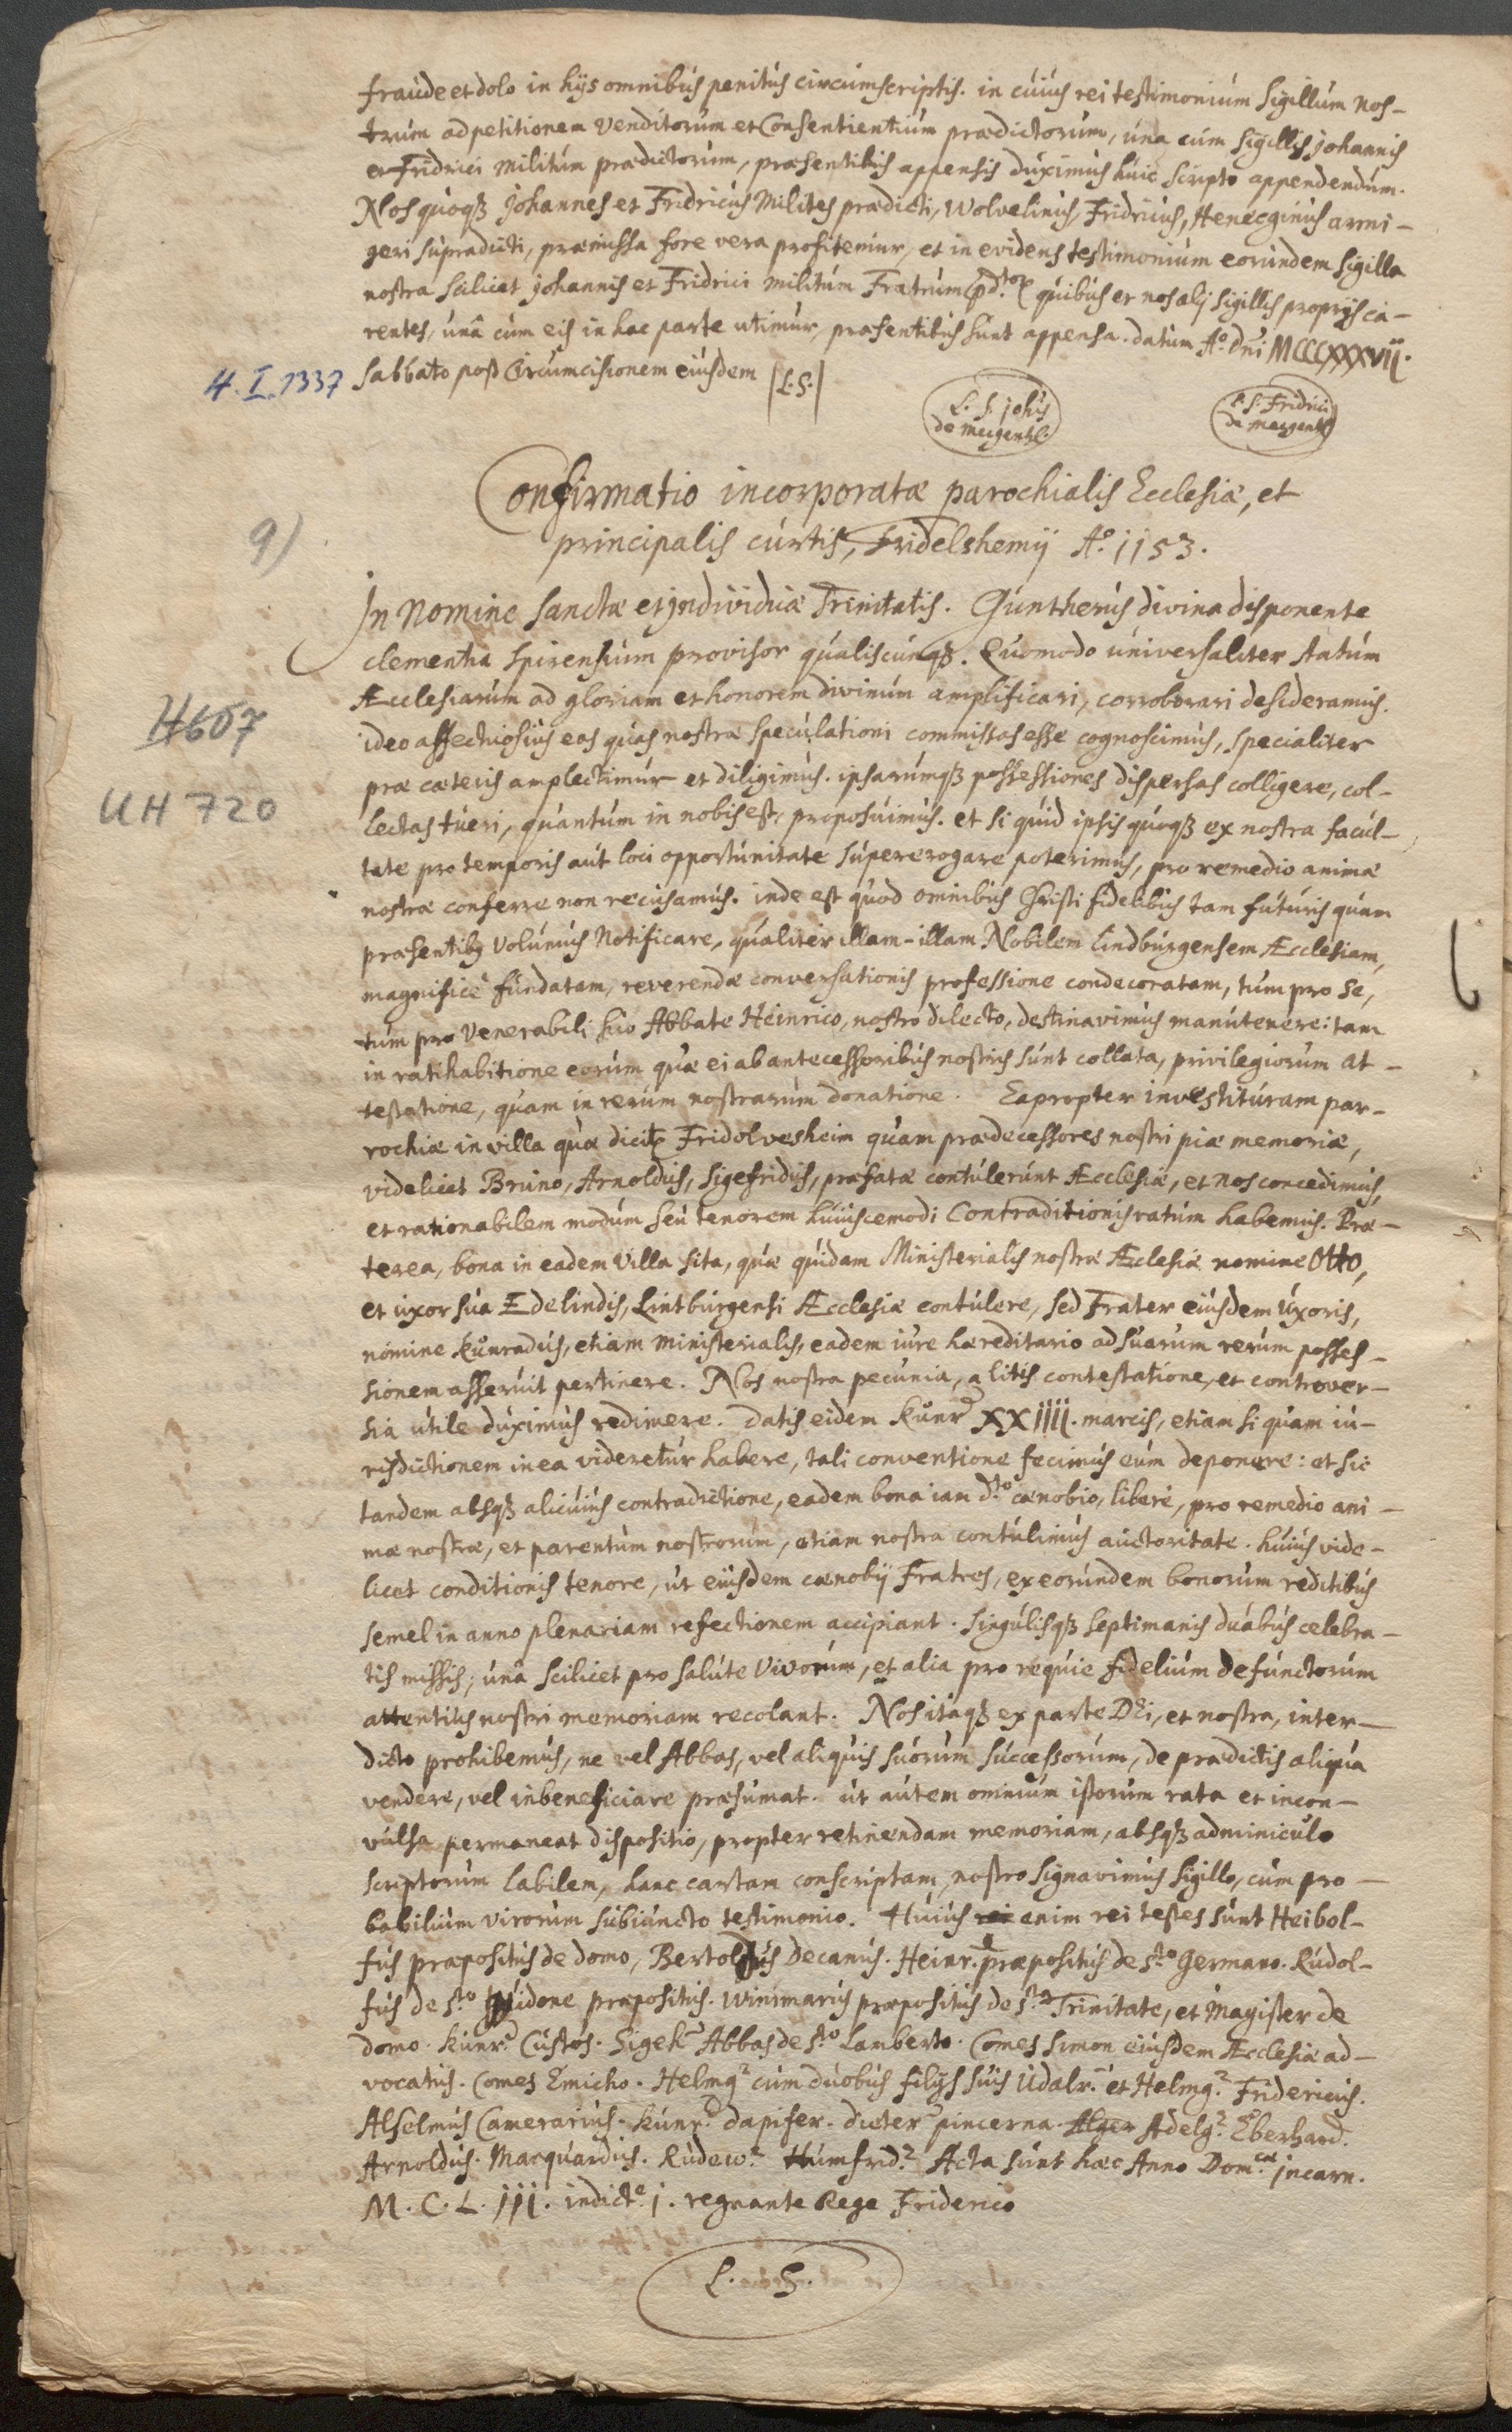 fraude et dolo in hijs omnibus penitus circumscriptis. in cuius rei testimonium Sigillum nos-
trum ad petitionem Venditorum et Consentientium prædictorum, una cum Sigillis johannis
et Fridrici Militum prædictorum, præsentibus appensis duximus huic scripto appendendum.
Nos quoqz johannes et Fridricus Milites prædicti, Wolvelinus, Fridricus, Henecginus armi-
geri supradicti, præmissa fore vera profitemur, et in evidens testimonium eorundem Sigilla
nostra scilicet johannis et Fridrici Militum Fratrum pd.tor quibus et nos alij sigillis proprijs ca-
rentes, unâ cum eis in hac parte utimur, præsentibus sunt appensa. datum Aº. Dni MCCCXXXVII.
4. I. 1337 Sabbato post Circumcisionem eiusdem |L.S.|
L. S. johis de mergenth.
L. S. Fridrici de mergenth
Confirmatio incorporatæ parochialis Ecclesiæ, et
9) principalis curtis, Fridelshemij Aº. 1153.
In Nomine Sanctæ et jndividuæ Trinitatis. Guntherus divina disponente
clementia Spirensium provisor qualiscunqz. Quomodo universaliter statum
Æcclesiarum ad gloriam et honorem divinum amplificari, corroborari desideramus.
H607 ideo affectuosius eas quas nostræ speculationi commissas esse cognoscimus, specialiter
præ cæteris amplectimur et diligimus. ipsarumqz possessiones dispersas colligere, col-
UH 720 lectas tueri, quantum in nobis est, proposuimus. et si quid ipsis quoqz ex nostra facul-
tate pro temporis aut loci opportunitate supererogare poterimus, pro remedio animæ
nostræ conferre non recusamus. inde est quod omnibus Christi fidelibus tam futuris quam
præsentibz Volumus Notificare, qualiter illam-illam Nobilem lindburgensem Æcclesiam,
magnificè fundatam, reverendæ conversationis professione condecoratam, tum pro se,
tum pro Venerabili suo Abbate Heinrico, nostro dilecto, destinavimus manutenere: tam
in ratihabitione eorum quæ ei ab antecessoribus nostris sunt collata, privilegiorum at-
testatione, quam in rerum nostrarum donatione. Eapropter investituram par-
rochiæ in villa quæ dicitr Fridolvesheim quam prædecessores nostri piæ memoriæ,
videlicet Bruno, Arnoldus, Sigefridus, præfatæ contulerunt Æcclesiæ, et nos concedimus,
et rationabilem modum seu tenorem huiuscemodi Contraditionis ratum habemus. Præ-
terea, bona in eadem Villa sita, quæ quidam Ministerialis nostræ Æcclesiæ nomine Otto,
et uxor sua Edelindis, Lintburgensi Æcclesiæ contulere, sed Frater eiusdem uxoris,
nomine Kunradus, etiam ministerialis, eadem iure hæreditario ad suarum rerum posses-
sionem asseruit pertinere. Nos nostra pecunia, a litis contestatione, et controver-
sia utile duximus redimere. Datis eidem Kunr XXIIII. marcis, etiam si quam iu-
risdictionem in ea videretur habere, tali conventione fecimus eum deponere: et sic
tandem absqz alicuius contradictione, eadem bona iam d.to cænobio, liberè, pro remedio ani-
mæ nostræ, et parentum nostrorum, etiam nostra contulimus auctoritate. huius vide-
licet conditionis tenore, ut eiusdem cænobij Fratres, ex eorundem bonorum reditibus
semel in anno plenariam refectionem accipiant. singulisqz septimanis duabus celebra-
tis missis; unâ scilicet pro salute Vivorum, et alia pro requie fidelium defunctorum
attentius nostri memoriam recolant. Nos itaqz ex parte Dei, et nostra, inter-
dicto prohibemus, ne vel Abbas, vel aliquis suorum successorum, de prædictis aliqua
vendere, vel inbeneficiare præsumat. ut autem omnium istorum rata et incon-
vulsa permaneat dispositio, propter retinendam memoriam, absqz adminiculo
scriptorum labilem, hanc cartam conscriptam, nostro signavimus sigillo, cum pro-
babilium virorum subiuncto testimonio. Huius rei enim rei testes sunt Heibol-
fus præpositus de domo, Bertolfus Decanus. Heinr. præpositus de S.to Germano. Rudol-
fus de S.to Widone præpositus. Winimarus præpositus de S.ta Trinitate, et Magister de
domo. Kunr. Custos. Sigeh Abbas de S.to Lamberto. Comes Simon eiusdem Æcclesiæ ad-
vocatus. Comes Emicho. Helmg cum duobus filijs suis Udalr. et Helmg. Fridericus.
Alselmus Camerarius. Kunr. dapifer. dieter pincerna. Alger Adelg. Eberhard.
Arnoldus. Marquardus. Rudew. Humfrid. Acta sunt hæc Anno Dom.cæ jncarn.
M. C. L. III. indict.e j. regnante Rege Friderico
L. S.